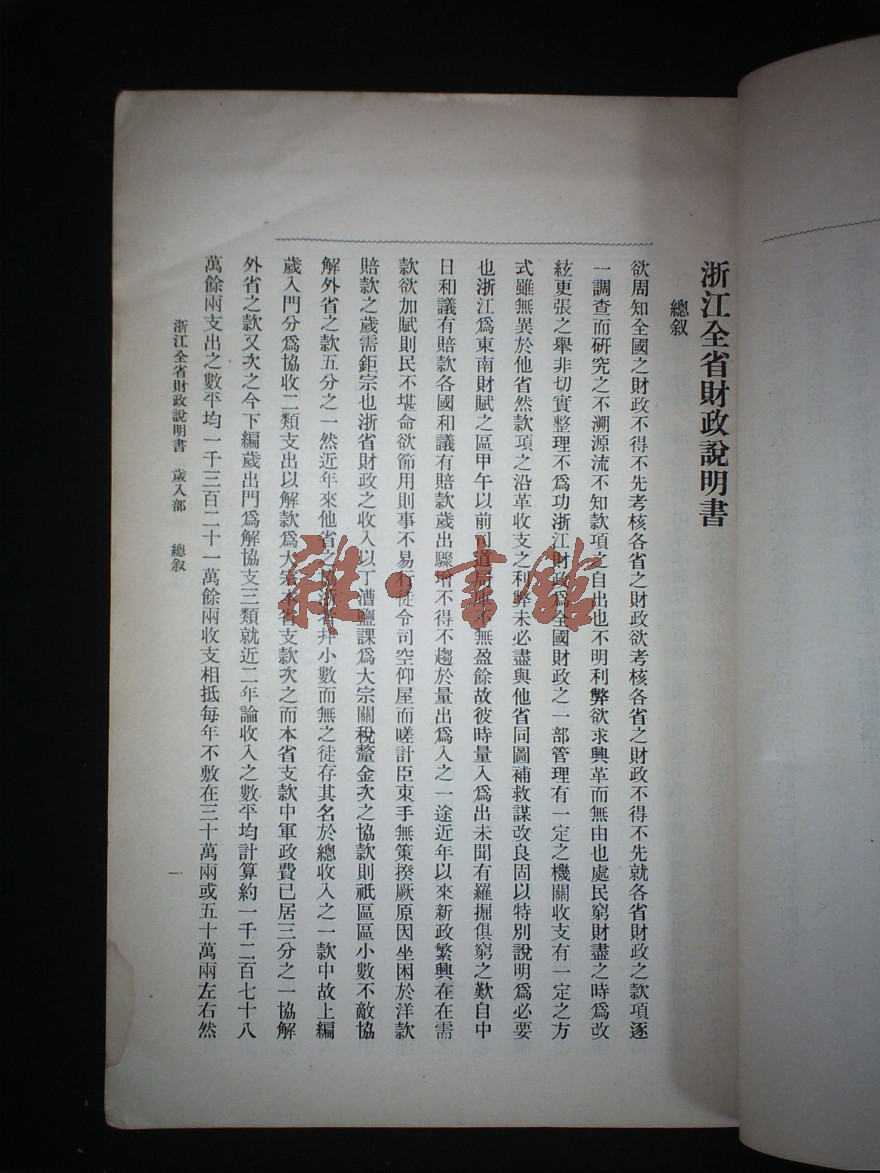 浙江全省財政說明書
總叙
欲周知全國之財政不得不先考核各省之財政欲考核各省之財政不得不先就各省財政之款項逐
一調查而研究之不溯源流不知款項之自出也不明利弊欲求興革而無由也處民窮財盡之時爲改
絃更張之舉非切實整理不爲功浙江財政爲全國財政之一部管理有一定之機關收支有一定之方
式雖無異於他省然款項之沿革收支之利弊未必盡與他省同圖補救謀改良固以特別說明爲必要
也浙江爲東南財賦之區甲午以前司道局庫無盈餘故彼時量入爲出未聞有羅掘俱窮之歎自中
日和議有賠款各國和議有賠款歲出驟增不得不趨於量出爲入之一途近年以來新政繁興在在需
款欲加賦則民不堪命欲節用則事不易行徒令司空仰屋而嗟計臣束手無策揆厥原因坐困於洋款
賠款之歲需鉅宗也浙省財政之收入以丁漕鹽課爲大宗關稅釐金次之協款則祇區區小數不敵協
解外省之款五分之一然近年來他省之小數而無之徒存其名於總收入之一款中故上編
歲入門分爲協收二類支出以解款爲大宗本省支款次之而本省支款中軍政費已居三分之一協解
外省之款又次之今下編歲出門爲解協支三類就近二年論收入之數平均計算約一千二百七十八
萬餘兩支出之數平均一千三百二十一萬餘兩收支相抵每年不敷在三十萬兩或五十萬兩左右然
浙江全省財政說明書 歲入部 總叙
一
雜·書館